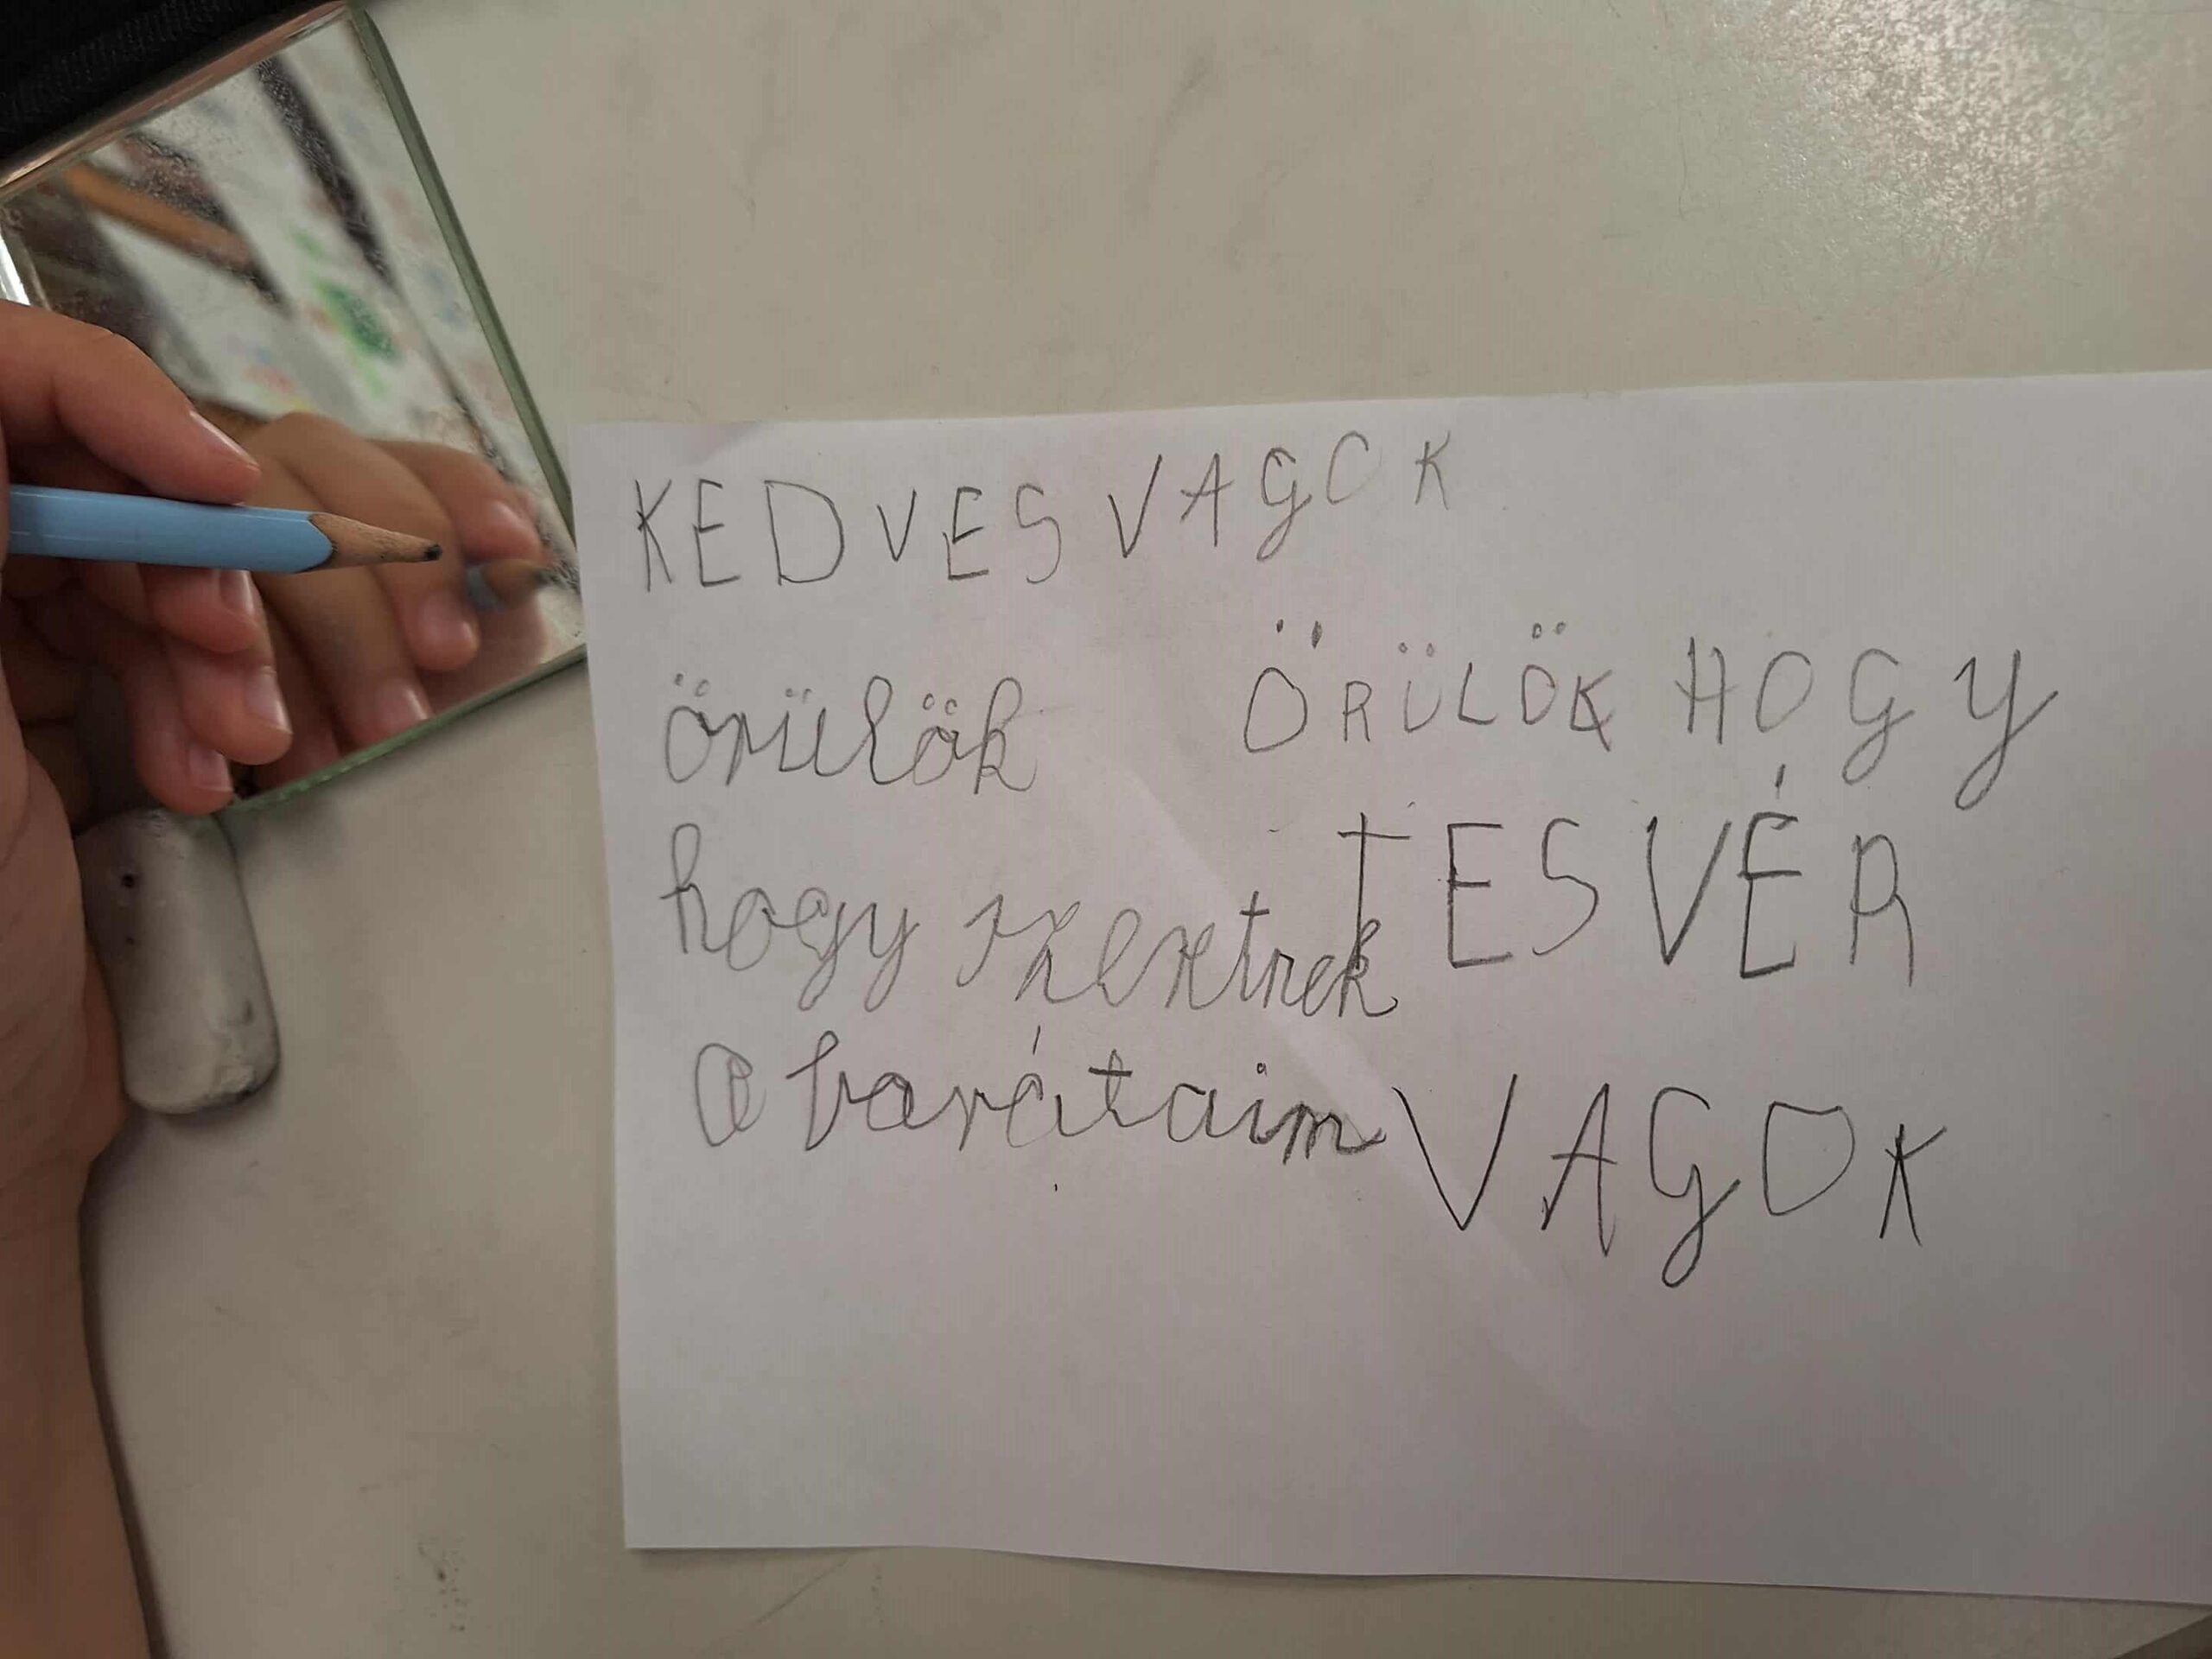 KEDVES VAGOK
örülök
hogy szeretnek
a barátaim
ÖRÜLÖK HOGY
TESVÉR
VAGOK